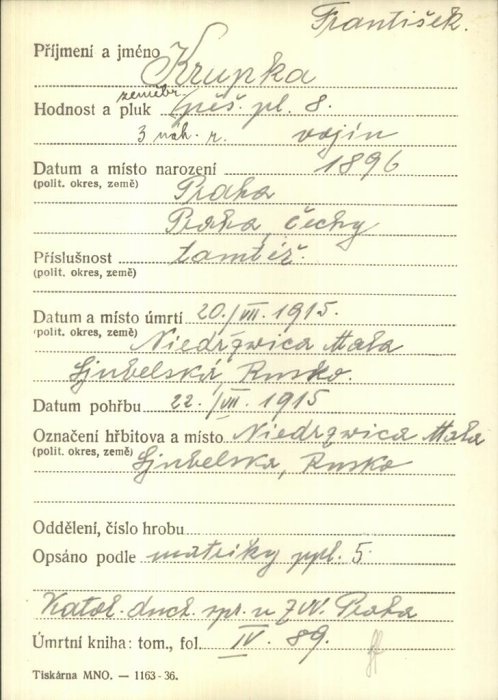 František.
Příjmení a jméno Krupka
zeměbr.
Hodnost a pluk pěš. pl. 8.
3 náh. r. vojín
Datum a místo narození 1896
(polit. okres, země) Praha
Praha, Čechy
Příslušnost tamtéž.
(polit. okres, země)
Datum a místo úmrtí 20./VII. 1915.
(polit. okres, země) Niedrzwica Mała
Ljubelská, Rusko.
Datum pohřbu 22./VII. 1915
Označení hřbitova a místo Niedrzwica Mała
(polit. okres, země) Ljubelska, Rusko
Oddělení, číslo hrobu
Opsáno podle matriky ppl. 5.
Katol. duch. spr. u Z.V. Praha
Úmrtní kniha: tom., fol. IV. 89.
Tiskárna MNO. — 1163-36.